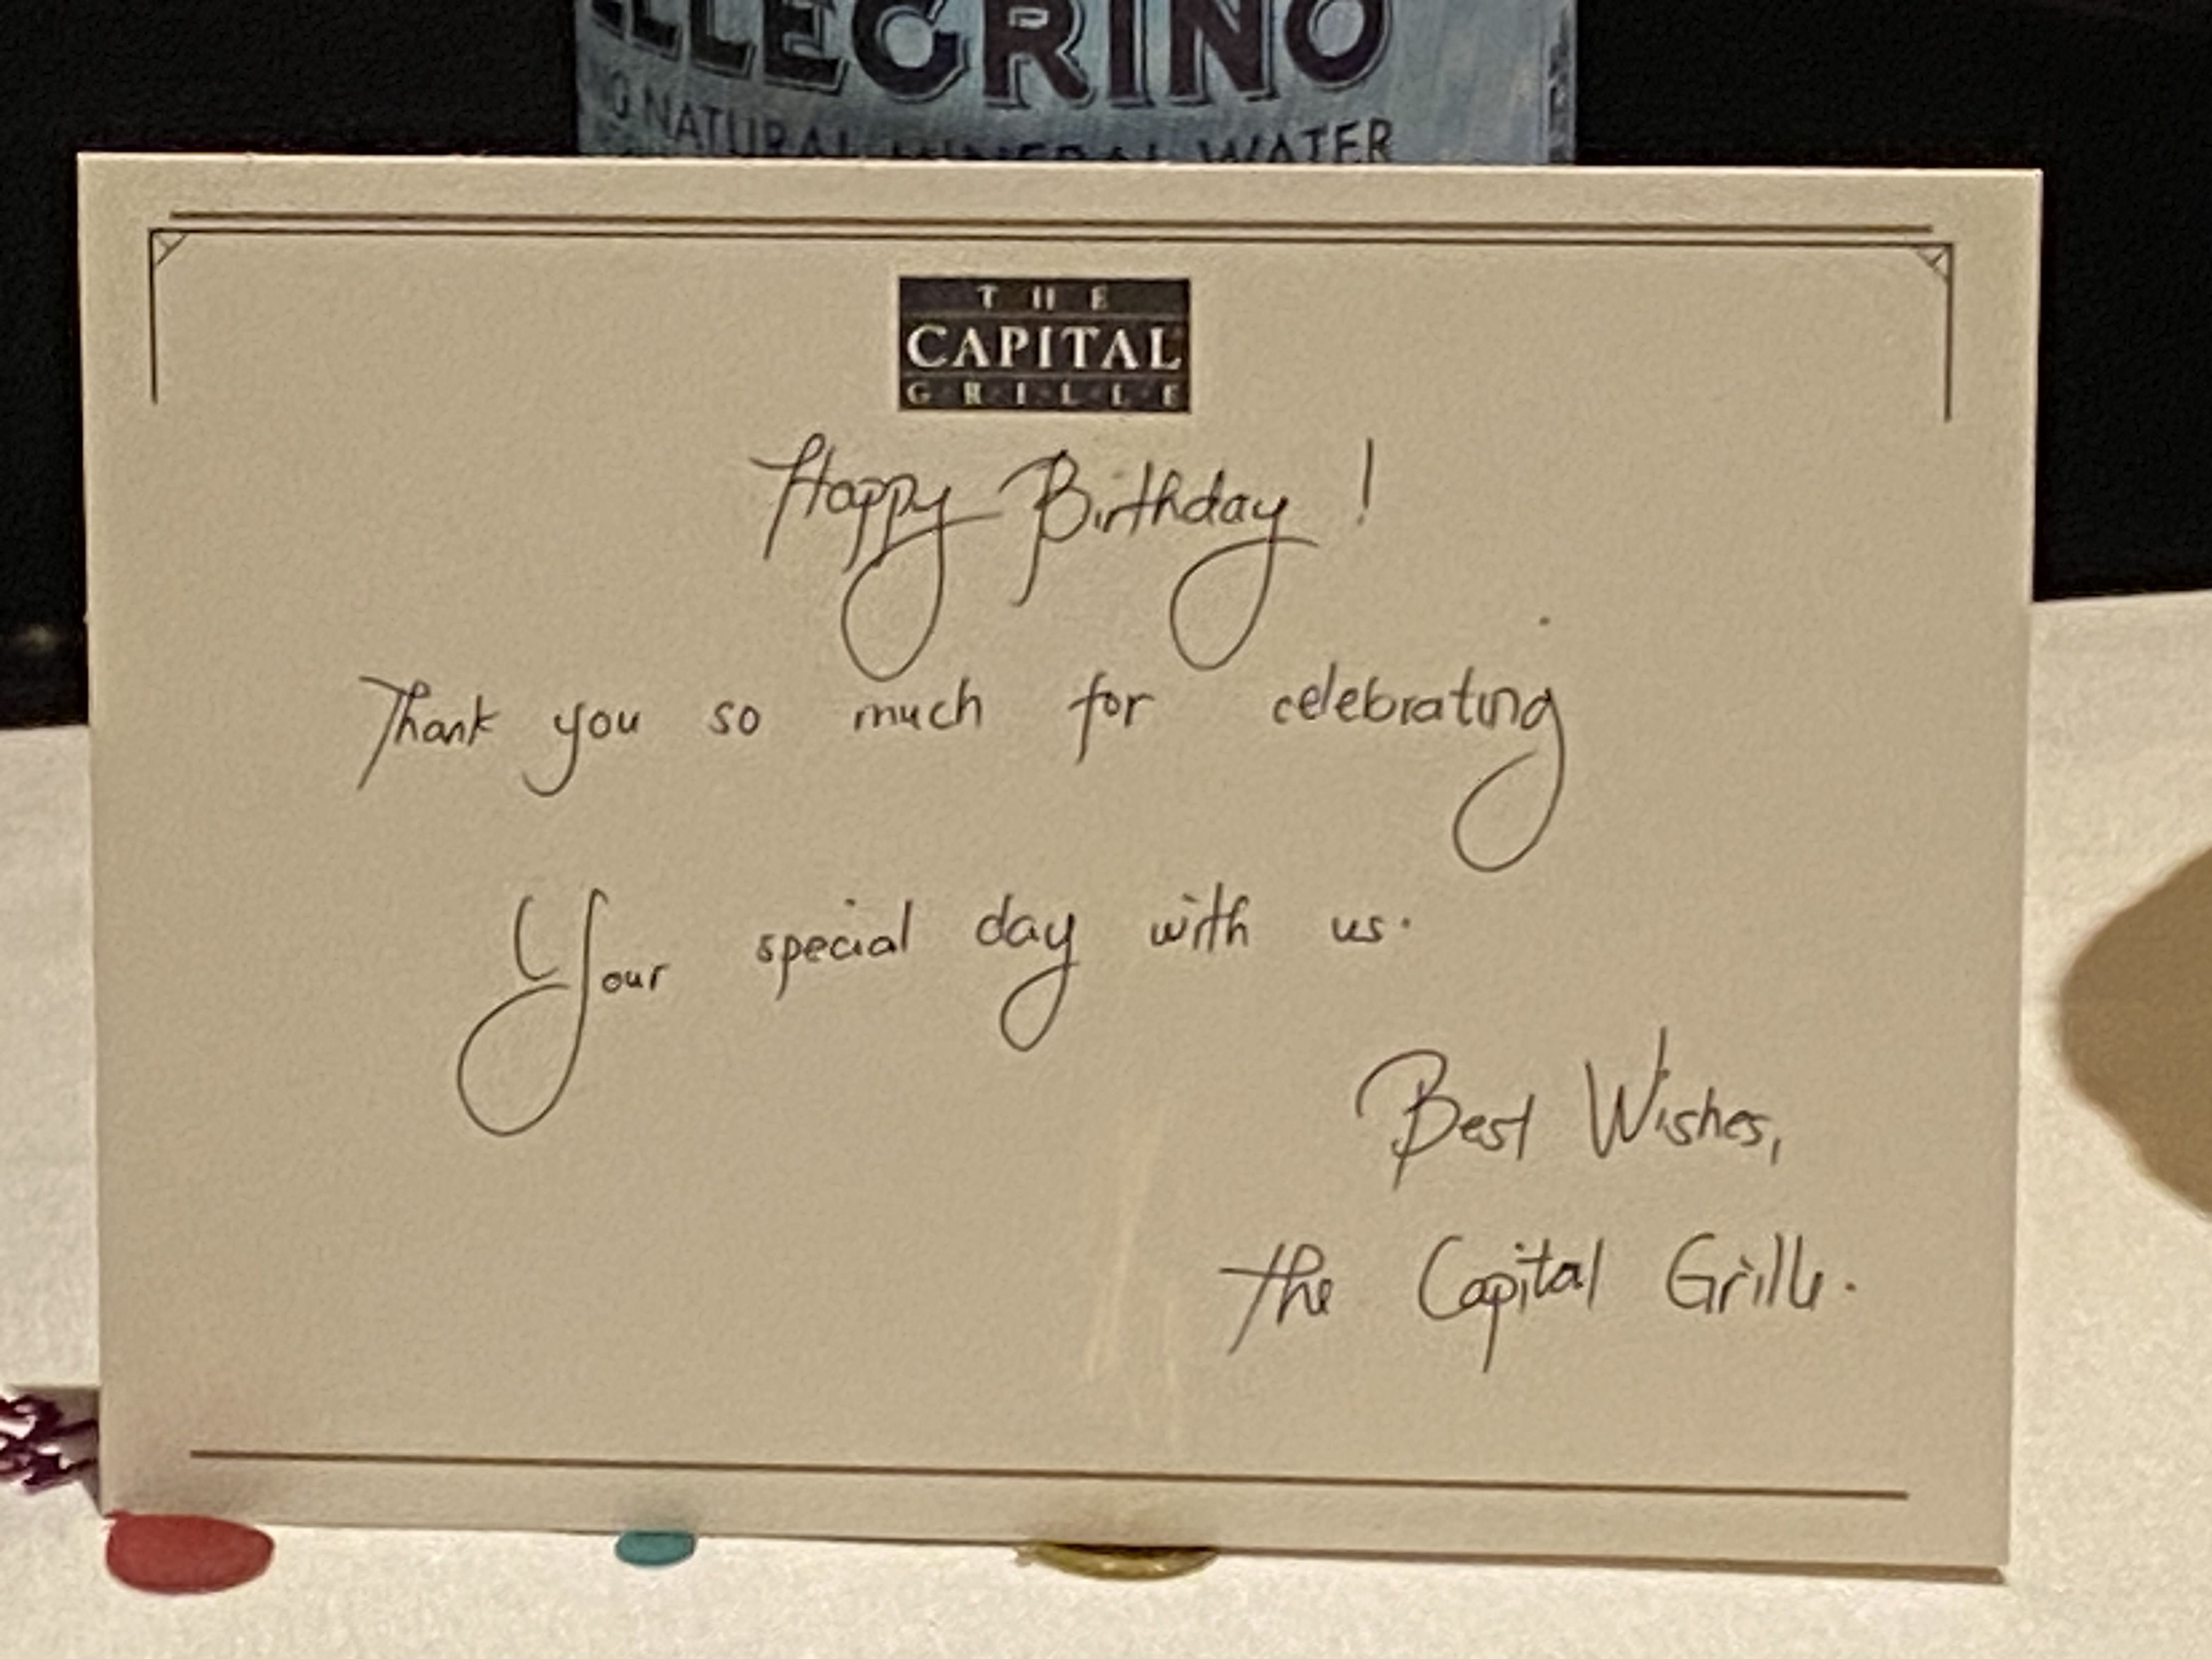 LLEGRINO
NATURAL MINERAL WATER
THE
CAPITAL
GRILLE
Happy Birthday !
Thank you so much for celebrating
Your special day with us.
Best Wishes,
the Capital Grille.